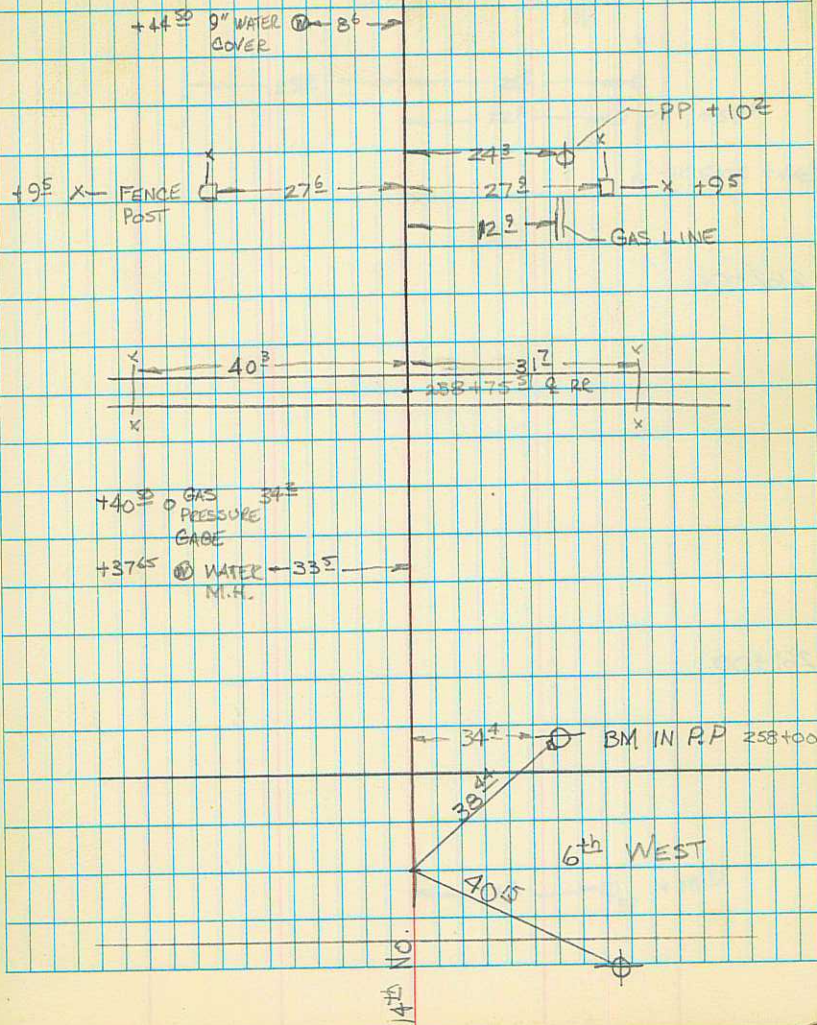 +44 50 9" WATER COVER W 8 6
PP +10 2
24 3
+9 5 X FENCE POST 27 6 27 9 X +9 5
12 9 GAS LINE
40 3 31 7
258+75 5 ℄ RR
+40 50 GAS PRESSURE GAGE 34 2
+37 65 W WATER M.H. 33 5
34 4 BM IN P.P 258+00
38 44
6th WEST
40 15
14th No.